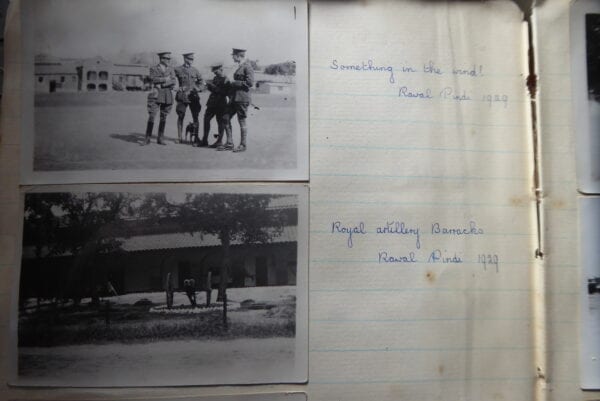 Something in the wind!
Rawal Pindi 1929
Royal artillery Barracks
Rawal Pindi 1929